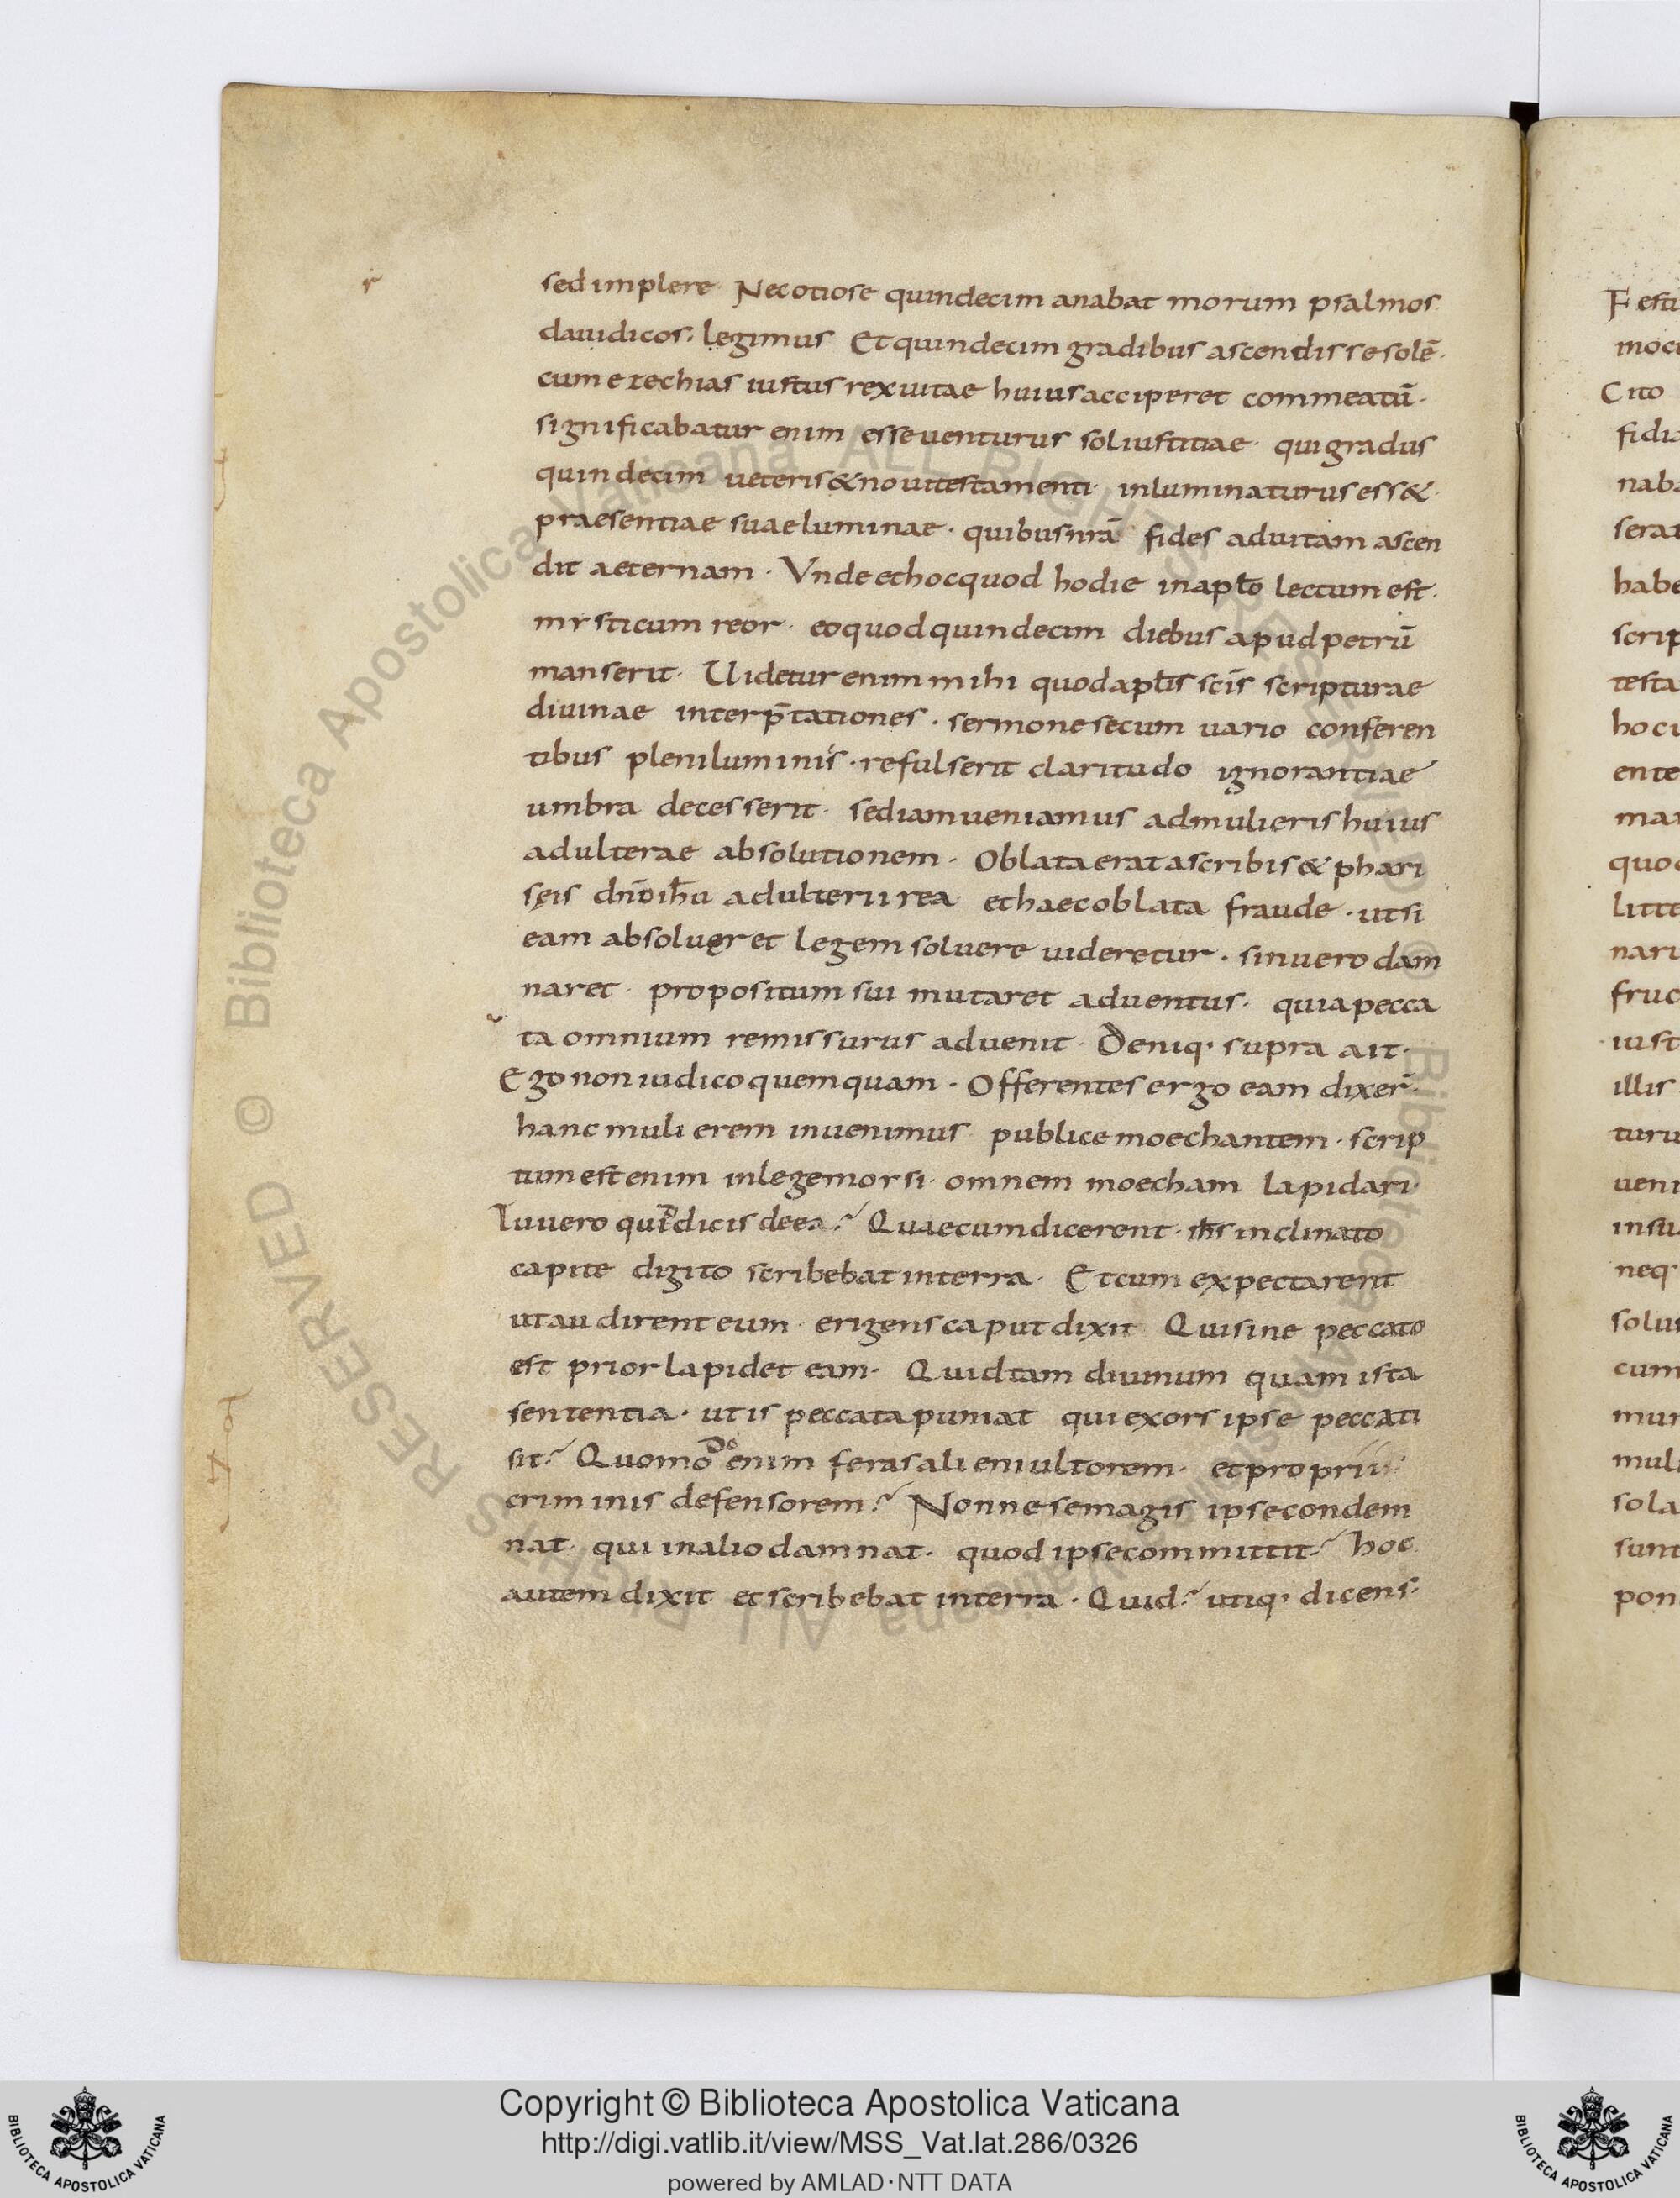 sed implere· Nec otiose quindecim anabatmorum psalmos
dauidicos· legimus Et quindecim gradibus ascendisse solē·
cum ezechias iustus rex uitae huius acciperet commeatū·
significabatur enim esse uenturus sol iustitiae· qui gradus
quindecim ueteris & noui testamenti· inluminaturus ess&·
praesentiae suae luminae· quibus nrā fides ad uitam ascen
dit aeternam· Vnde et hoc quod hodie in aptɫo lectum est·
mysticum reor· eo quod quindecim diebus apud petrū
manserit· Uidetur enim mihi quod aptɫis scīs scripturae
diuinae interp̄tationes· sermone secum uario conferen
tibus pleni luminis· refulserit claritudo ignorantiae
umbra decesserit· sed iam ueniamus ad mulieris huius
adulterae absolutionem· Oblata erat a scribis & phari
sęis dn̄o ih̄u adulterii rea et haec oblata fraude· ut si
eam absolueret legem soluere uideretur· sin uero dam
naret· propositum sui mutaret aduentus· quia pecca
ta omnium remissurus aduenit· Deniq· supra ait·
Ego non iudico quemquam· Offerentes ergo eam dixer̄·
hanc mulierem inuenimus publice moechantem· scrip
tum est enim in lege moysi· omnem moecham lapidari·
Tu uero quid dicis de ea? Quae cum dicerent· ih̄s inclinato
capite digito scribebat in terra· Et cum expectarent
ut audirent eum· erigens caput dixit Qui sine peccato
est prior lapidet eam· Quid tam diuinum quam ista
sententia· ut is peccata puniat qui exors ipse peccati
sit? Quomodo enim feras alieni ultorem· et proprii
criminis defensorem? Nonne se magis ipse condem
nat· qui in alio damnat· quod ipse committit? hoc
autem dixit et scribebat in terra· Quid? utiq· dicens·
Festi
moci
Cito
fidia
naba
serat
habe
scrip
testa
hoc u
ente
mar
quod
litte
naru
fruc
iust
illis
turu
ueni
insu
neq·
solus
cum
mun
muli
sola
sunt
pon
© Biblioteca Apostolica Vaticana ALL RIGHTS RESERVED © Biblioteca Apostolica Vaticana ALL RIGHTS RESERVED
Copyright © Biblioteca Apostolica Vaticana
http://digi.vatlib.it/view/MSS_Vat.lat.286/0326
powered by AMLAD·NTT DATA
BIBLIOTECA APOSTOLICA VATICANA
BIBLIOTECA APOSTOLICA VATICANA